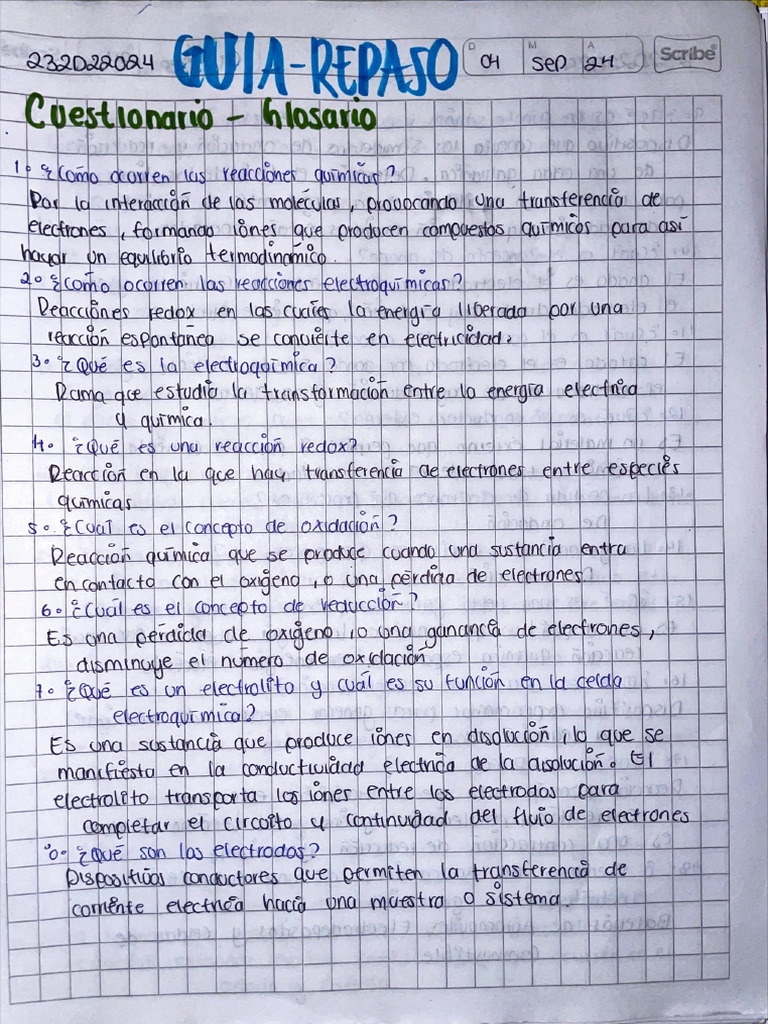 232D22024 GUIA-REPASO D 04 M sep A 24 Scribe
Cuestionario - Glosario
1. ¿Cómo ocurren las reacciones químicas?
Por la interacción de las moléculas, provocando una transferencia de
electrones, formando iones que producen compuestos químicos para así
un equilibrio termodinámico.
2. ¿Cómo ocurren las reacciones electroquímicas?
Reacciones redox en las cuales la energía liberada por una
reacción espontánea se convierte en electricidad.
3. ¿Qué es la electroquímica?
Rama que estudia la transformación entre la energía electrica
y química.
4. ¿Qué es una reacción redox?
Reacción en la que hay transferencia de electrones entre especies
químicas
5. ¿Cuál es el concepto de oxidación?
Reacción química que se produce cuando una sustancia entra
en contacto con el oxígeno, o una pérdida de electrones.
6. ¿Cuál es el concepto de reducción?
Es una pérdida de oxígeno, o una ganancia de electrones,
disminuye el número de oxidación
7. ¿Qué es un electrolito y cuál es su función en la celda
electroquímica?
Es una sustancia que produce iones en disolución, lo que se
manifiesta en la conductividad electrica de la disolución. El
electrolito transporta los iones entre los electrodos para
completar el circuito y continuidad del flujo de electrones
8. ¿Qué son los electrodos?
Dispositivos conductores que permiten la transferencia de
corriente electrica hacia una muestra o sistema.